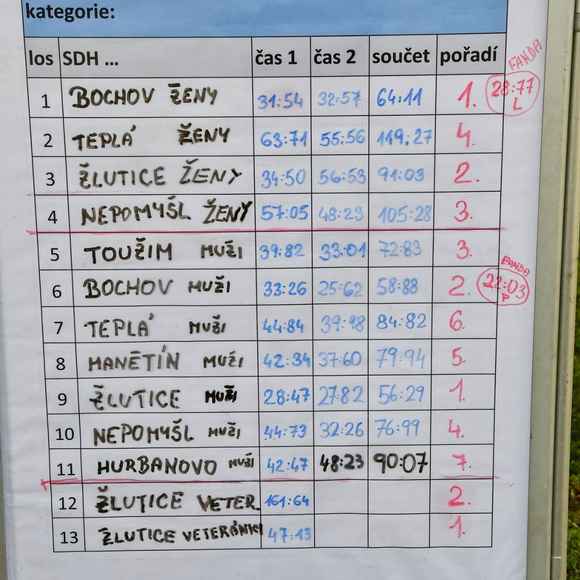 kategorie:
los SDH ... čas 1 čas 2 součet pořadí
FANDA
1 BOCHOV ŽENY 31:54 32:57 64:11 1. 28:77 L
2 TEPLÁ ŽENY 63:71 55:56 119:27 4.
3 ŽLUTICE ŽENY 34:50 56:53 91:03 2.
4 NEPOMYŠL ŽENY 57:05 48:23 105:28 3.
5 TOUŽIM MUŽI 39:82 33:01 72:83 3.
FANDA
6 BOCHOV MUŽI 33:26 25:62 58:88 2. 22:03 P
7 TEPLÁ MUŽI 44:84 39:98 84:82 6.
8 MANĚTÍN MUŽI 42:34 37:60 79:94 5.
9 ŽLUTICE MUŽI 28:47 27:82 56:29 1.
10 NEPOMYŠL MUŽI 44:73 32:26 76:99 4.
11 HURBANOVO MUŽI 42:47 48:23 90:07 7.
12 ŽLUTICE VETER. 161:64 2.
13 ŽLUTICE VETERÁNKY 47:13 1.